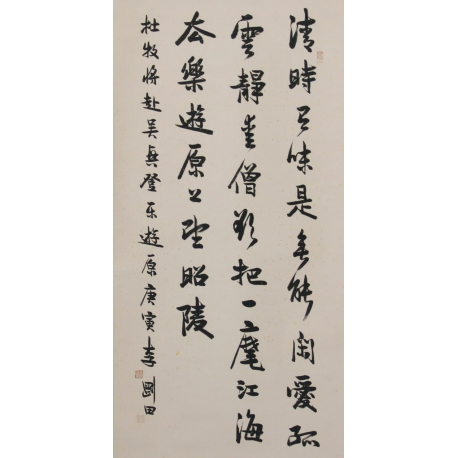 清時有味是無能閑愛孤
雲靜愛僧欲把一麾江海
去樂遊原上望昭陵
杜牧將赴吳興登乐遊原庚寅李剛田